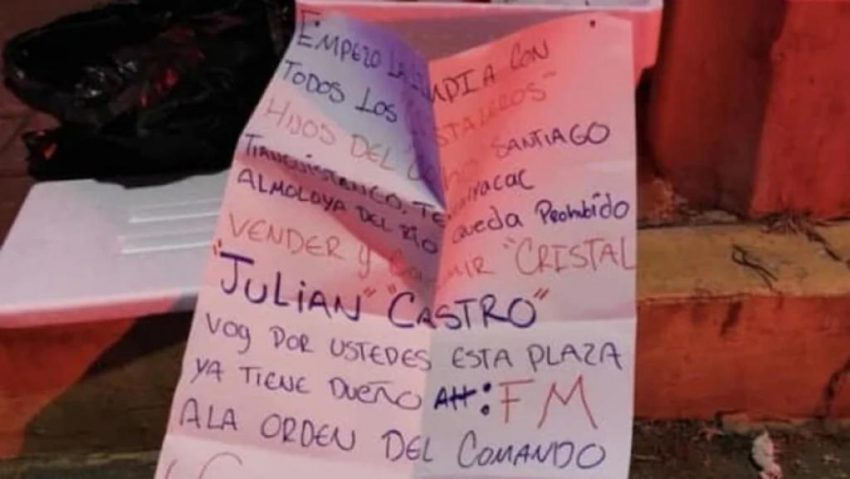 EMPEZO LA LIMPIA CON
TODOS LOS "
HIJOS DEL SANTIAGO
TIANGUISTENCO,
ALMOLOYA DEL RIO queda Prohibido
VENDER y "CRISTAL
"JULIAN" "CASTRO"
VOY POR USTEDES ESTA PLAZA
YA TIENE DUEÑO Att: FM
ALA ORDEN DEL COMANDO